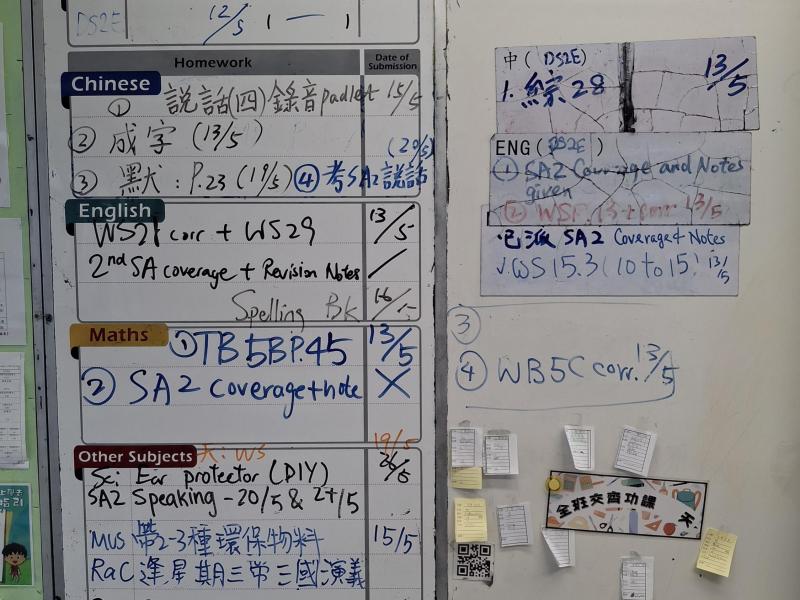 DS2E 12/5 1 — 1
Homework
Date of Submission
Chinese
① 説話(四)錄音padlet 15/5
② 成字 (13/5)
(20/5)
③ 默: P.23 (19/5) ④ 考SA2說話
English
WS21 corr + WS29 13/5
2nd SA coverage + Revision Notes /
Spelling Bk 16/5
Maths
① TB 5B P.45 13/5
② SA2 coverage + note X
Other Subjects
: WS 19/5
Sci Ear protector (DIY) 26/5
SA2 Speaking - 20/5 & 27/5
Mus 帶2-3種環保物料 15/5
RaC 逢星期三帶三國演義
中( DS2E)
1. 綜28 13/5
ENG( DS2E )
① SA2 Coverage and Notes
given
② WS P.13 + corr 13/5
已派 SA2 Coverage + Notes
√. WS 15.3 (10 to 15) 13/5
③
④ WB5C corr. 13/5
全班交齊功課 天